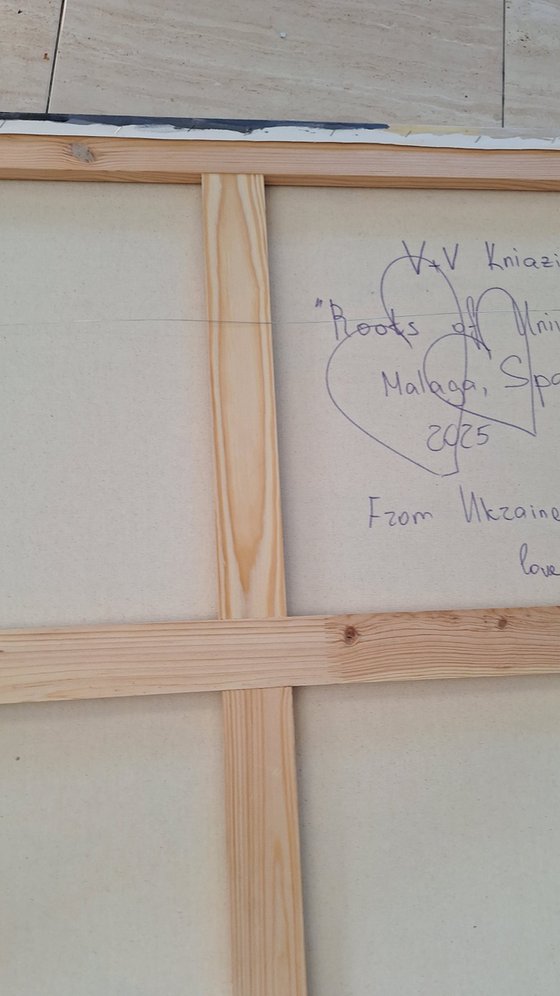 V+V Kniazi
"Roots of Univ
Malaga, Spa
2025
From Ukraine
love